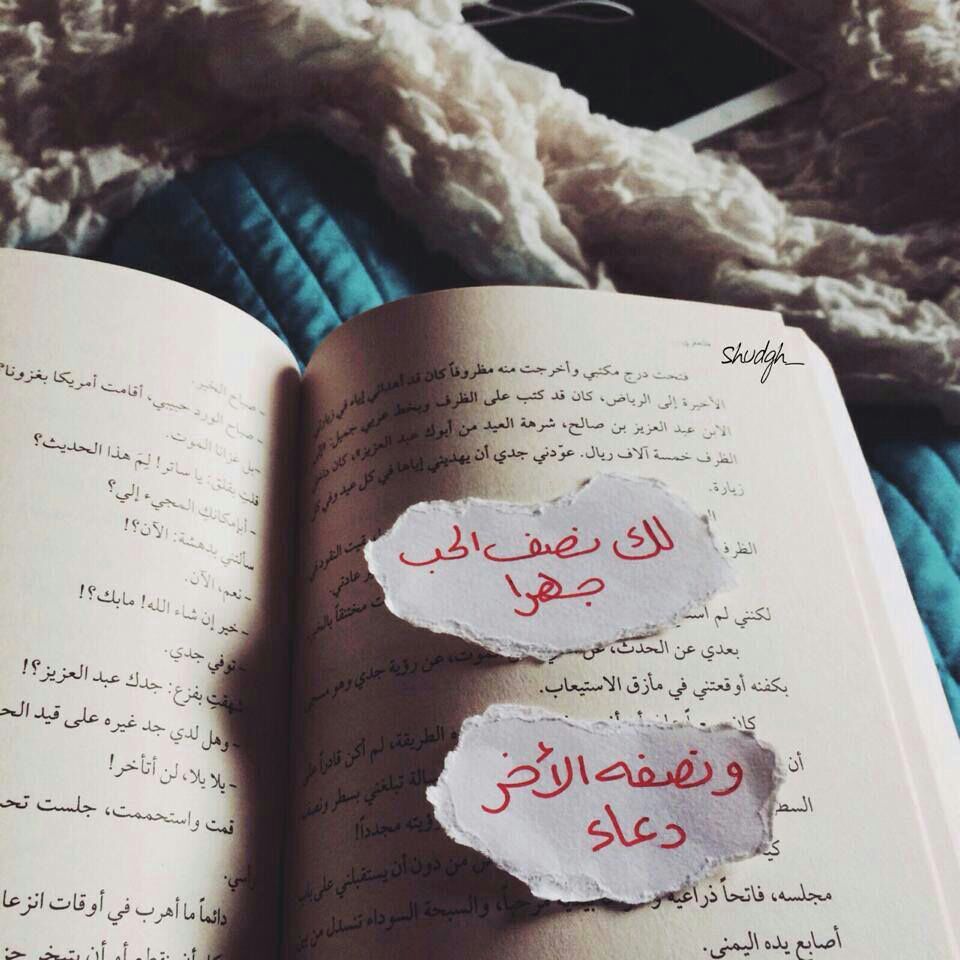 shudgh_
فتحت درج مكتبي وأخرجت منه مظروفاً كان قد أهداني إياه في
الأخيرة إلى الرياض، كان قد كتب على الظرف وبخط عربي جميل:
الابن عبد العزيز بن صالح، شرهة العيد من أبوك عبد العزيز»، كان
الظرف خمسة آلاف ريال. عوّدني جدي أن يهديني إياها في كل عيد وفي كل
زيارة.
لك نصف الحب
جهرا
الظرف
لكنني لم
بعدي عن الحدث، عن رؤية جدي وهو
بكفنه أوقعتني في مأزق الاستيعاب.
كان
ونصفه الأخر
دعاء
الطريقة، لم أكن قادراً على
أن
تبلغني بسطر ونصف
رؤيته مجدداً!
من دون أن يستقبلني على باب
مجلسه، فاتحاً ذراعيه والسبحة السوداء تنسدل من بين
أصابع يده اليمنى.
- صباح الخير.
- صباح الورد حبيبي، أقامت أمريكا بغزونا؟
- بل غزانا الموت.
قلت بقلق: يا ساتر! لِمَ هذا الحديث؟
- أبإمكانك المجيء إلي؟
سألتني بدهشة: الآن؟!
- نعم، الآن.
- خير إن شاء الله! مابك؟!
- توفي جدي.
شهقت بفزع: جدك عبد العزيز؟!
- وهل لدي جد غيره على قيد
- يلا يلا، لن أتأخر!
قمت واستحممت، جلست
دائماً ما أهرب في أوقات